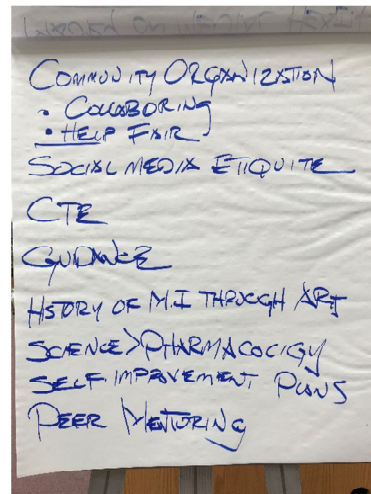 COMMUNITY ORGANIZATION
• COLLABORING
• HELP FAIR
SOCIAL MEDIA ETIQUITE
CTE
GUIDANCE
HISTORY OF M.I THROUGH ART
SCIENCE > PHARMACOCIGY
SELF IMPROVEMENT PLANS
PEER MENTORING